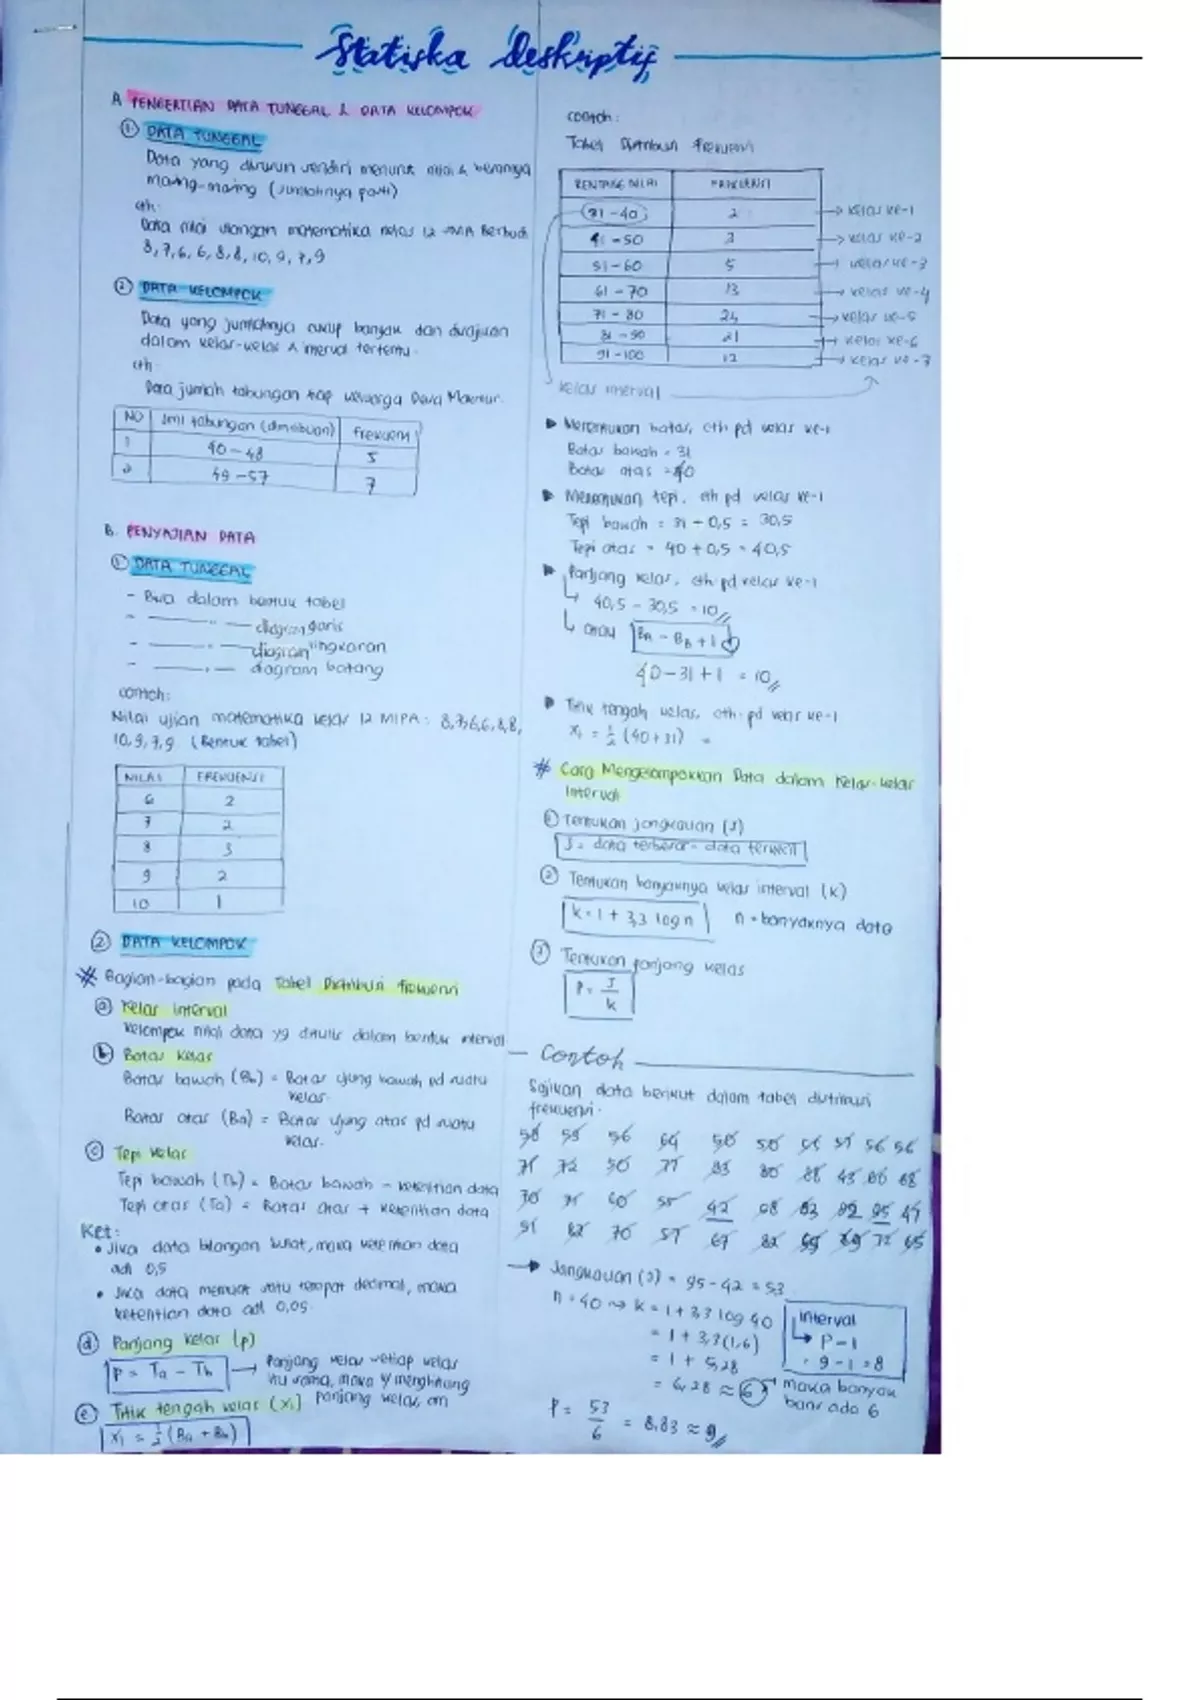 Statiska deskriptif
A PENGERTIAN DATA TUNGGAL & DATA KELOMPOK
① DATA TUNGGAL
Data yang disusun sendiri menurut nilai & besarnya
masing-masing (jumlahnya pasti)
cth:
Data nilai ulangan matematika kelas 12 SMA Berbudi
8, 7, 6, 6, 8, 8, 10, 9, 7, 9
② DATA KELOMPOK
Data yang jumlahnya cukup banyak dan disajikan
dalam kelas-kelas & interval tertentu.
cth:
Data jumlah tabungan tiap keluarga Desa Makmur.
NO Jml tabungan (dlm ribuan) Frekuensi
1 40-48 5
2 49-57 7
B. PENYAJIAN DATA
① DATA TUNGGAL
- Bisa dalam bentuk tabel
- diagram garis
- diagram lingkaran
- diagram batang
contoh:
Nilai ujian matematika kelas 12 MIPA: 8,7,6,6,8,8,
10,9,7,9 (Bentuk tabel)
NILAI FREKUENSI
6 2
7 2
8 3
9 2
10 1
② DATA KELOMPOK
* Bagian-bagian pada Tabel Distribusi frekuensi
ⓐ Kelas interval
Kelompok nilai data yg ditulis dalam bentuk interval
ⓑ Batas kelas
Batas bawah (Bb) = Batas ujung bawah pd suatu
kelas.
Batas atas (Ba) = Batas ujung atas pd suatu
kelas.
ⓒ Tepi kelas
Tepi bawah (Tb) = Batas bawah - ketelitian data
Tepi atas (Ta) = Batas atas + ketelitian data
Ket:
• Jika data bilangan bulat, maka ketelitian data
adl 0,5
• Jika data memuat satu tempat desimal, maka
ketelitian data adl 0,05
ⓓ Panjang kelas (p)
P = Ta - Tb → Panjang kelas setiap kelas
itu sama, maka y menghitung
panjang kelas, am
ⓔ Titik tengah kelas (xi)
Xi = 1/2 (Ba + Bb)
contoh:
Tabel Distribusi frekuensi
RENTANG NILAI FREKUENSI
31-40 2 → kelas ke-1
41-50 3 → kelas ke-2
51-60 5 → kelas ke-3
61-70 13 → kelas ke-4
71-80 24 → kelas ke-5
81-90 21 → kelas ke-6
91-100 12 → kelas ke-7
kelas interval
▶ Menentukan batas, cth pd kelas ke-1
Batas bawah = 31
Batas atas = 40
▶ Menentukan tepi, cth pd kelas ke-1
Tepi bawah = 31 - 0,5 = 30,5
Tepi atas = 40 + 0,5 = 40,5
▶ Panjang kelas, cth pd kelas ke-1
↳ 40,5 - 30,5 = 10
↳ atau BA - BB + 1
40-31+1 = 10
▶ Titik tengah kelas, cth pd kelas ke-1
Xi = 1/2 (40+31) =
* Cara Mengelompokkan Data dalam Kelas-kelas
Interval
① Tentukan jangkauan (J)
J = data terbesar - data terkecil
② Tentukan banyaknya kelas interval (k)
k = 1 + 3,3 log n n = banyaknya data
③ Tentukan panjang kelas
P = J/k
- Contoh
Sajikan data berikut dalam tabel distribusi
frekuensi.
→ Jangkauan (J) = 95 - 42 = 53
n = 40 → k = 1 + 3,3 log 40
= 1 + 3,3 (1,6)
= 1 + 5,28
= 6,28 ≈ 6 → maka banyak
baris ada 6
Interval
↳ P - 1
= 9 - 1 = 8
P = 53/6 = 8,83 ≈ 9